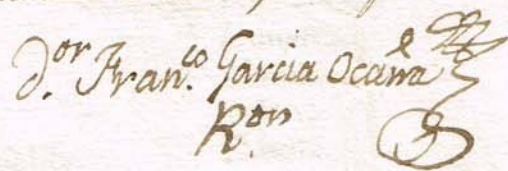 D.or Fran.co Garcia Ocaña
R.on